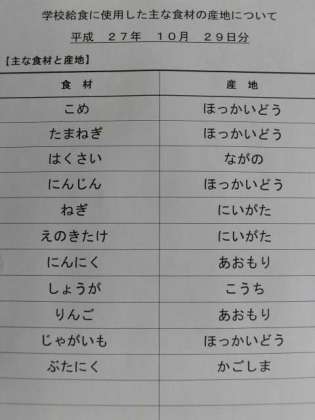 学校給食に使用した主な食材の産地について
平成　２７年　１０月　２９日分
【主な食材と産地】
食　材　産　地
こめ　ほっかいどう
たまねぎ　ほっかいどう
はくさい　ながの
にんじん　ほっかいどう
ねぎ　にいがた
えのきたけ　にいがた
にんにく　あおもり
しょうが　こうち
りんご　あおもり
じゃがいも　ほっかいどう
ぶたにく　かごしま